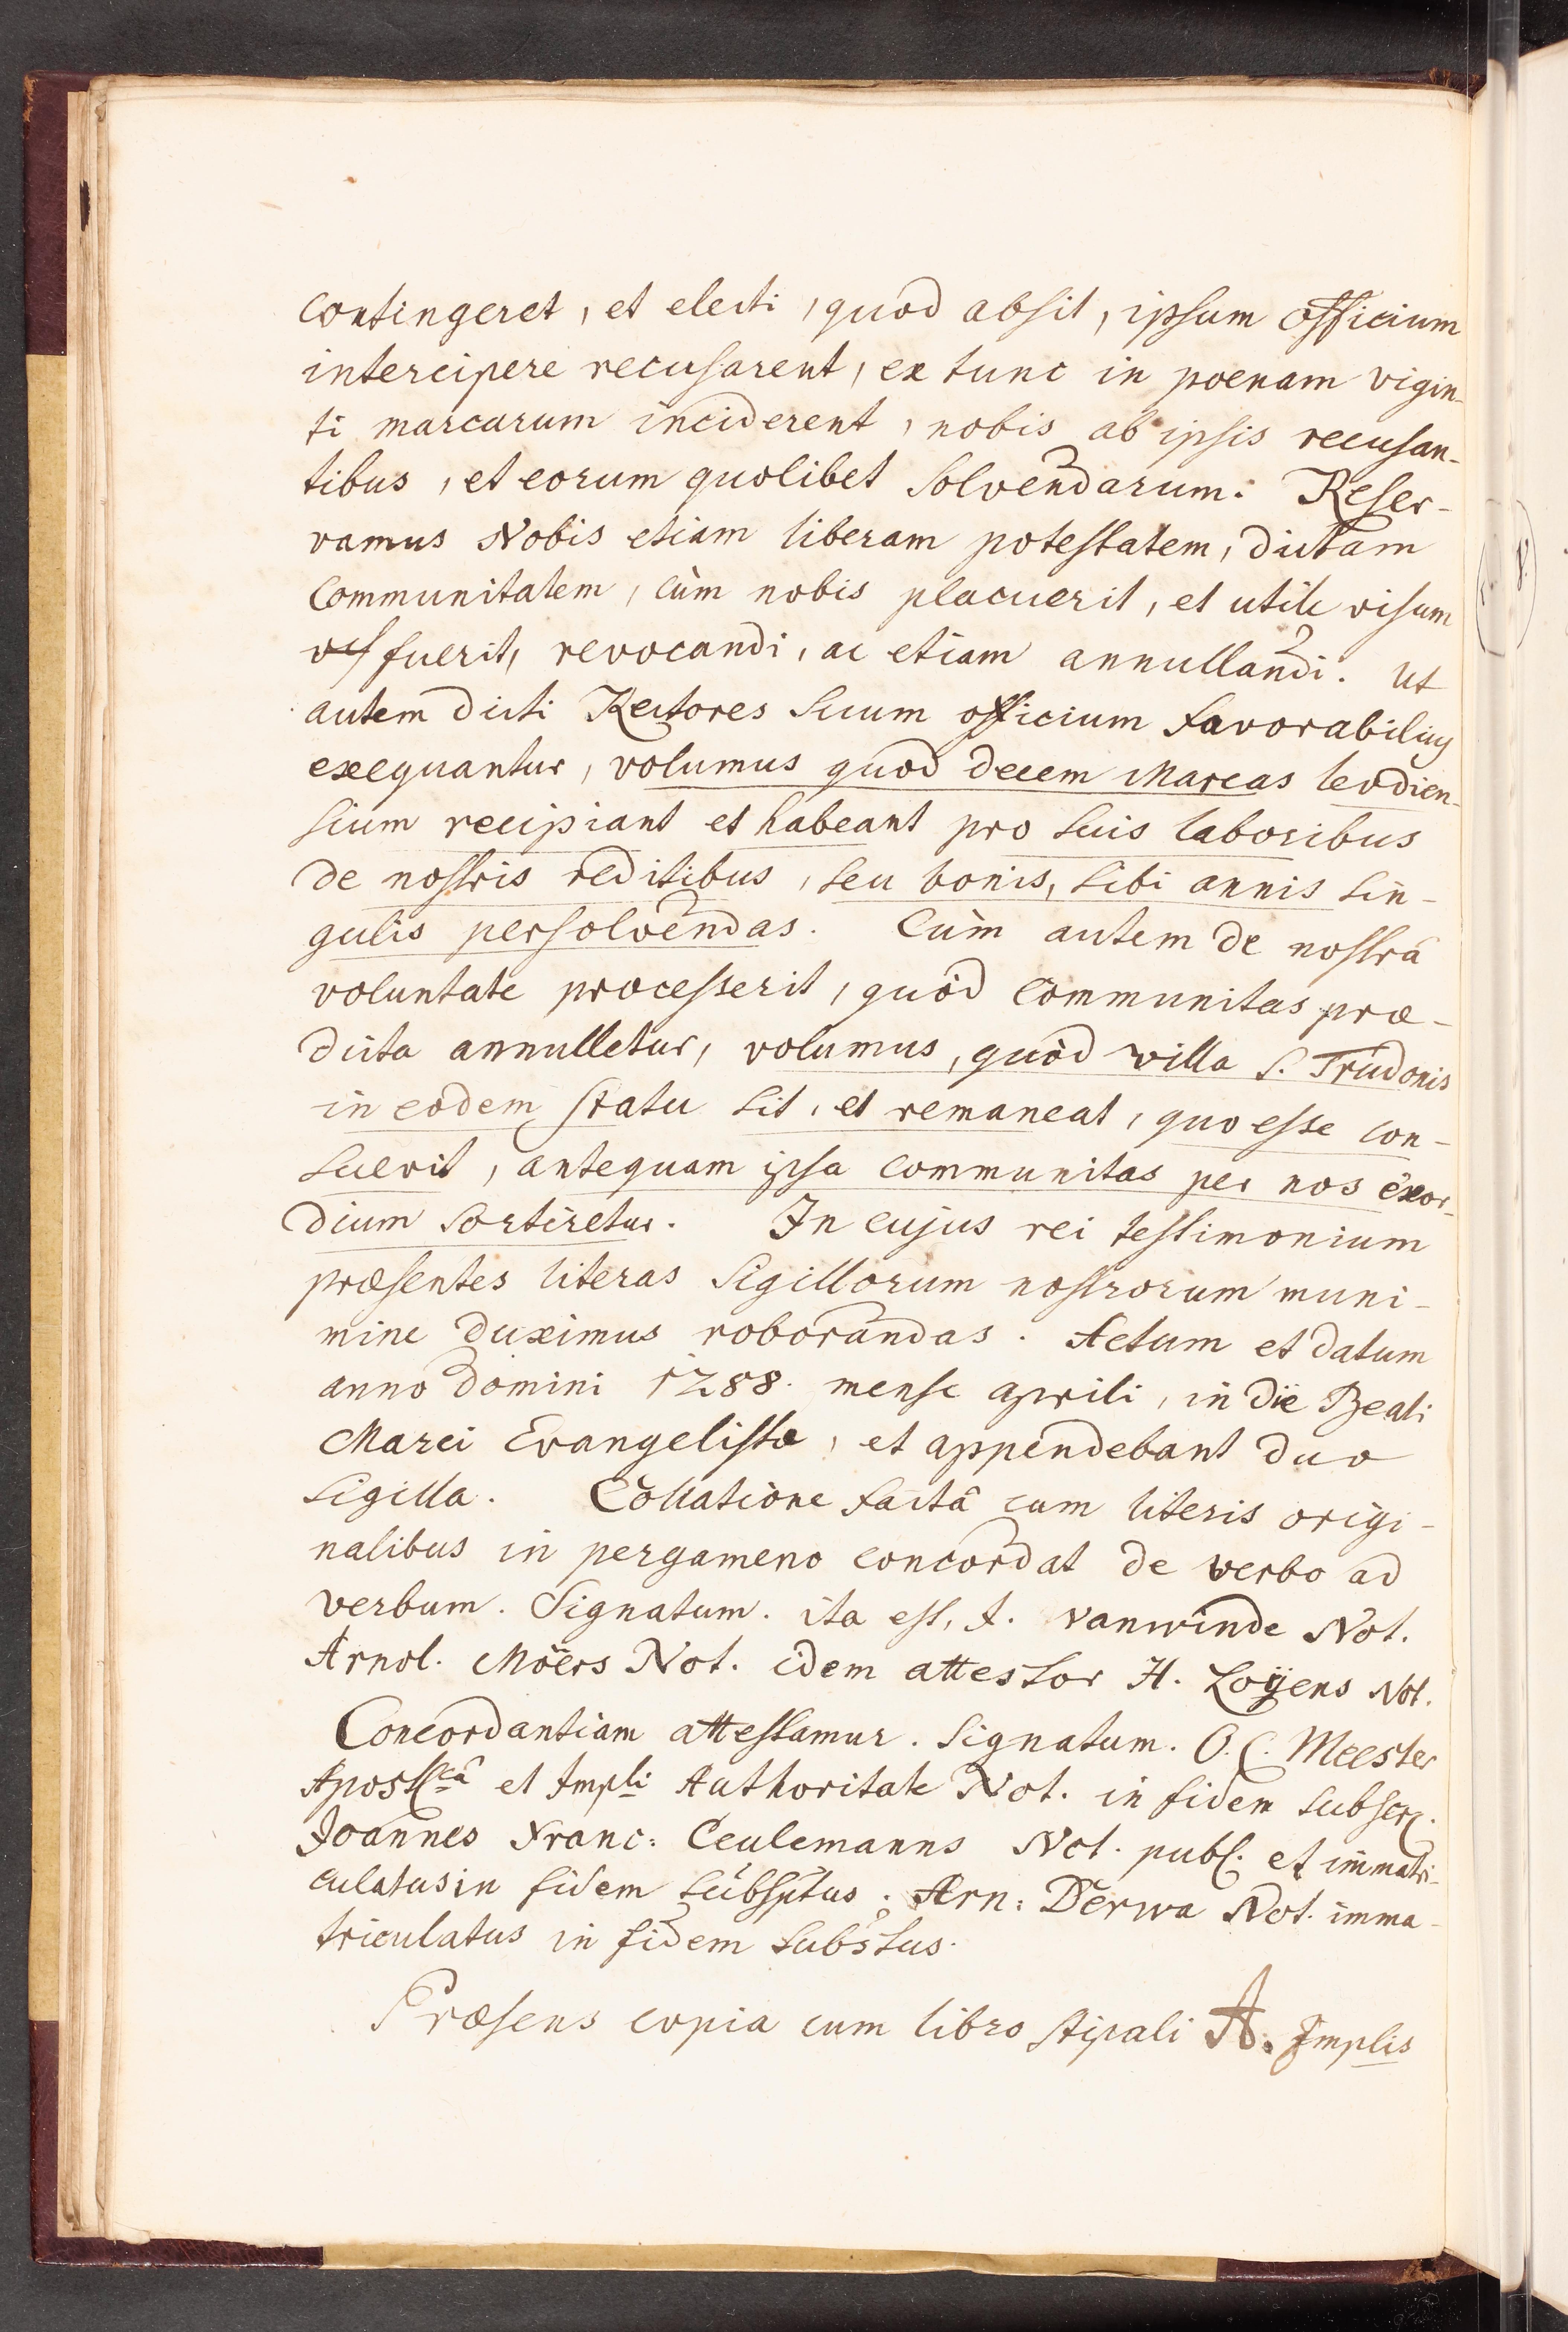 contingeret, et electi, quod absit, ipsum officium
intercipere recusarent, ex tunc in poenam vigin-
ti marcarum inciderent, nobis ab ipsis recusan-
tibus, et eorum quolibet solvendarum. Reser-
vamus Nobis etiam liberam potestatem, dictam
Communitatem, cùm nobis placuerit, et utile visum
fuerit, revocandi, ac etiam annullandi. Ut
autem dicti Rectores suum officium favorabilius
exequantur, volumus quod decem Marcas leodien-
sium recipiant et habeant pro suis laboribus
de nostris reditibus, seu bonis, sibi annis sin-
gulis persolvendas. Cùm autem de nostrâ
voluntate processerit, quòd Communitas præ-
dicta annulletur, volumus, quòd villa S. Trudonis
in eodem statu sit, et remaneat, quo esse con-
suevit, antequam ipsa communitas per nos exor-
dium sortiretur. In cujus rei testimonium
præsentes literas sigillorum nostrorum muni-
mine duximus roborandas. Actum et datum
anno Domini 1288. mense aprili, in die Beati
Marci Evangelistæ, et appendebant duo
sigilla. Collatione factâ cum literis origi-
nalibus in pergameno concordat de verbo ad
verbum. Signatum. ita est, A. vanwinde Not.
Arnol. Möers Not. idem attestor H. Loÿens Not.
Concordantiam attestamur. signatum. O. C. Meester
Apostlcâ et Impli Authoritate Not. in fidem subscr.
Joannes Franc: Ceulemanns Not. publ. et immatri-
culatus in fidem subsptus. Arn: Derwa Not. imma-
triculatus in fidem substus.
Præsens copia cum libro stipali A. Implis